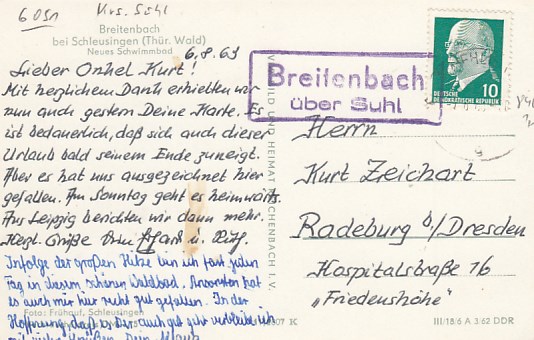 6051 Krs. Suhl
Breitenbach
bei Schleusingen (Thür. Wald)
Neues Schwimmbad
6.8.63
Lieber Onkel Kurt!
Mit herzlichem Dank erhielten wir
nun auch gestern Deine Karte. Es
ist bedauerlich, daß sich auch dieser
Urlaub bald seinem Ende zuneigt.
Aber es hat uns ausgezeichnet hier
gefallen. Am Sonntag geht es heimwärts.
Aus Leipzig berichten wir dann mehr.
Herzl. Grüße Dein u.
Infolge der großen Hitze bin ich fast jeden
Tag in diesem schönen Waldbad. Ansonsten hat
es auch mir hier recht gut gefallen. In der
Hoffnung, daß es Dir auch gut geht verbleibe ich
mit Grüßen Dein
Foto: Frühauf, Schleusingen
VERLAG BILD UND HEIMAT REICHENBACH I. V.
Breitenbach
über Suhl
10
DEUTSCHE
DEMOKRATISCHE REPUBLIK
Herrn
Kurt Zeichart
Radeburg b/Dresden
Hospitalstraße 16
„Friedenshöhe"
III/18/6 A 3/62 DDR